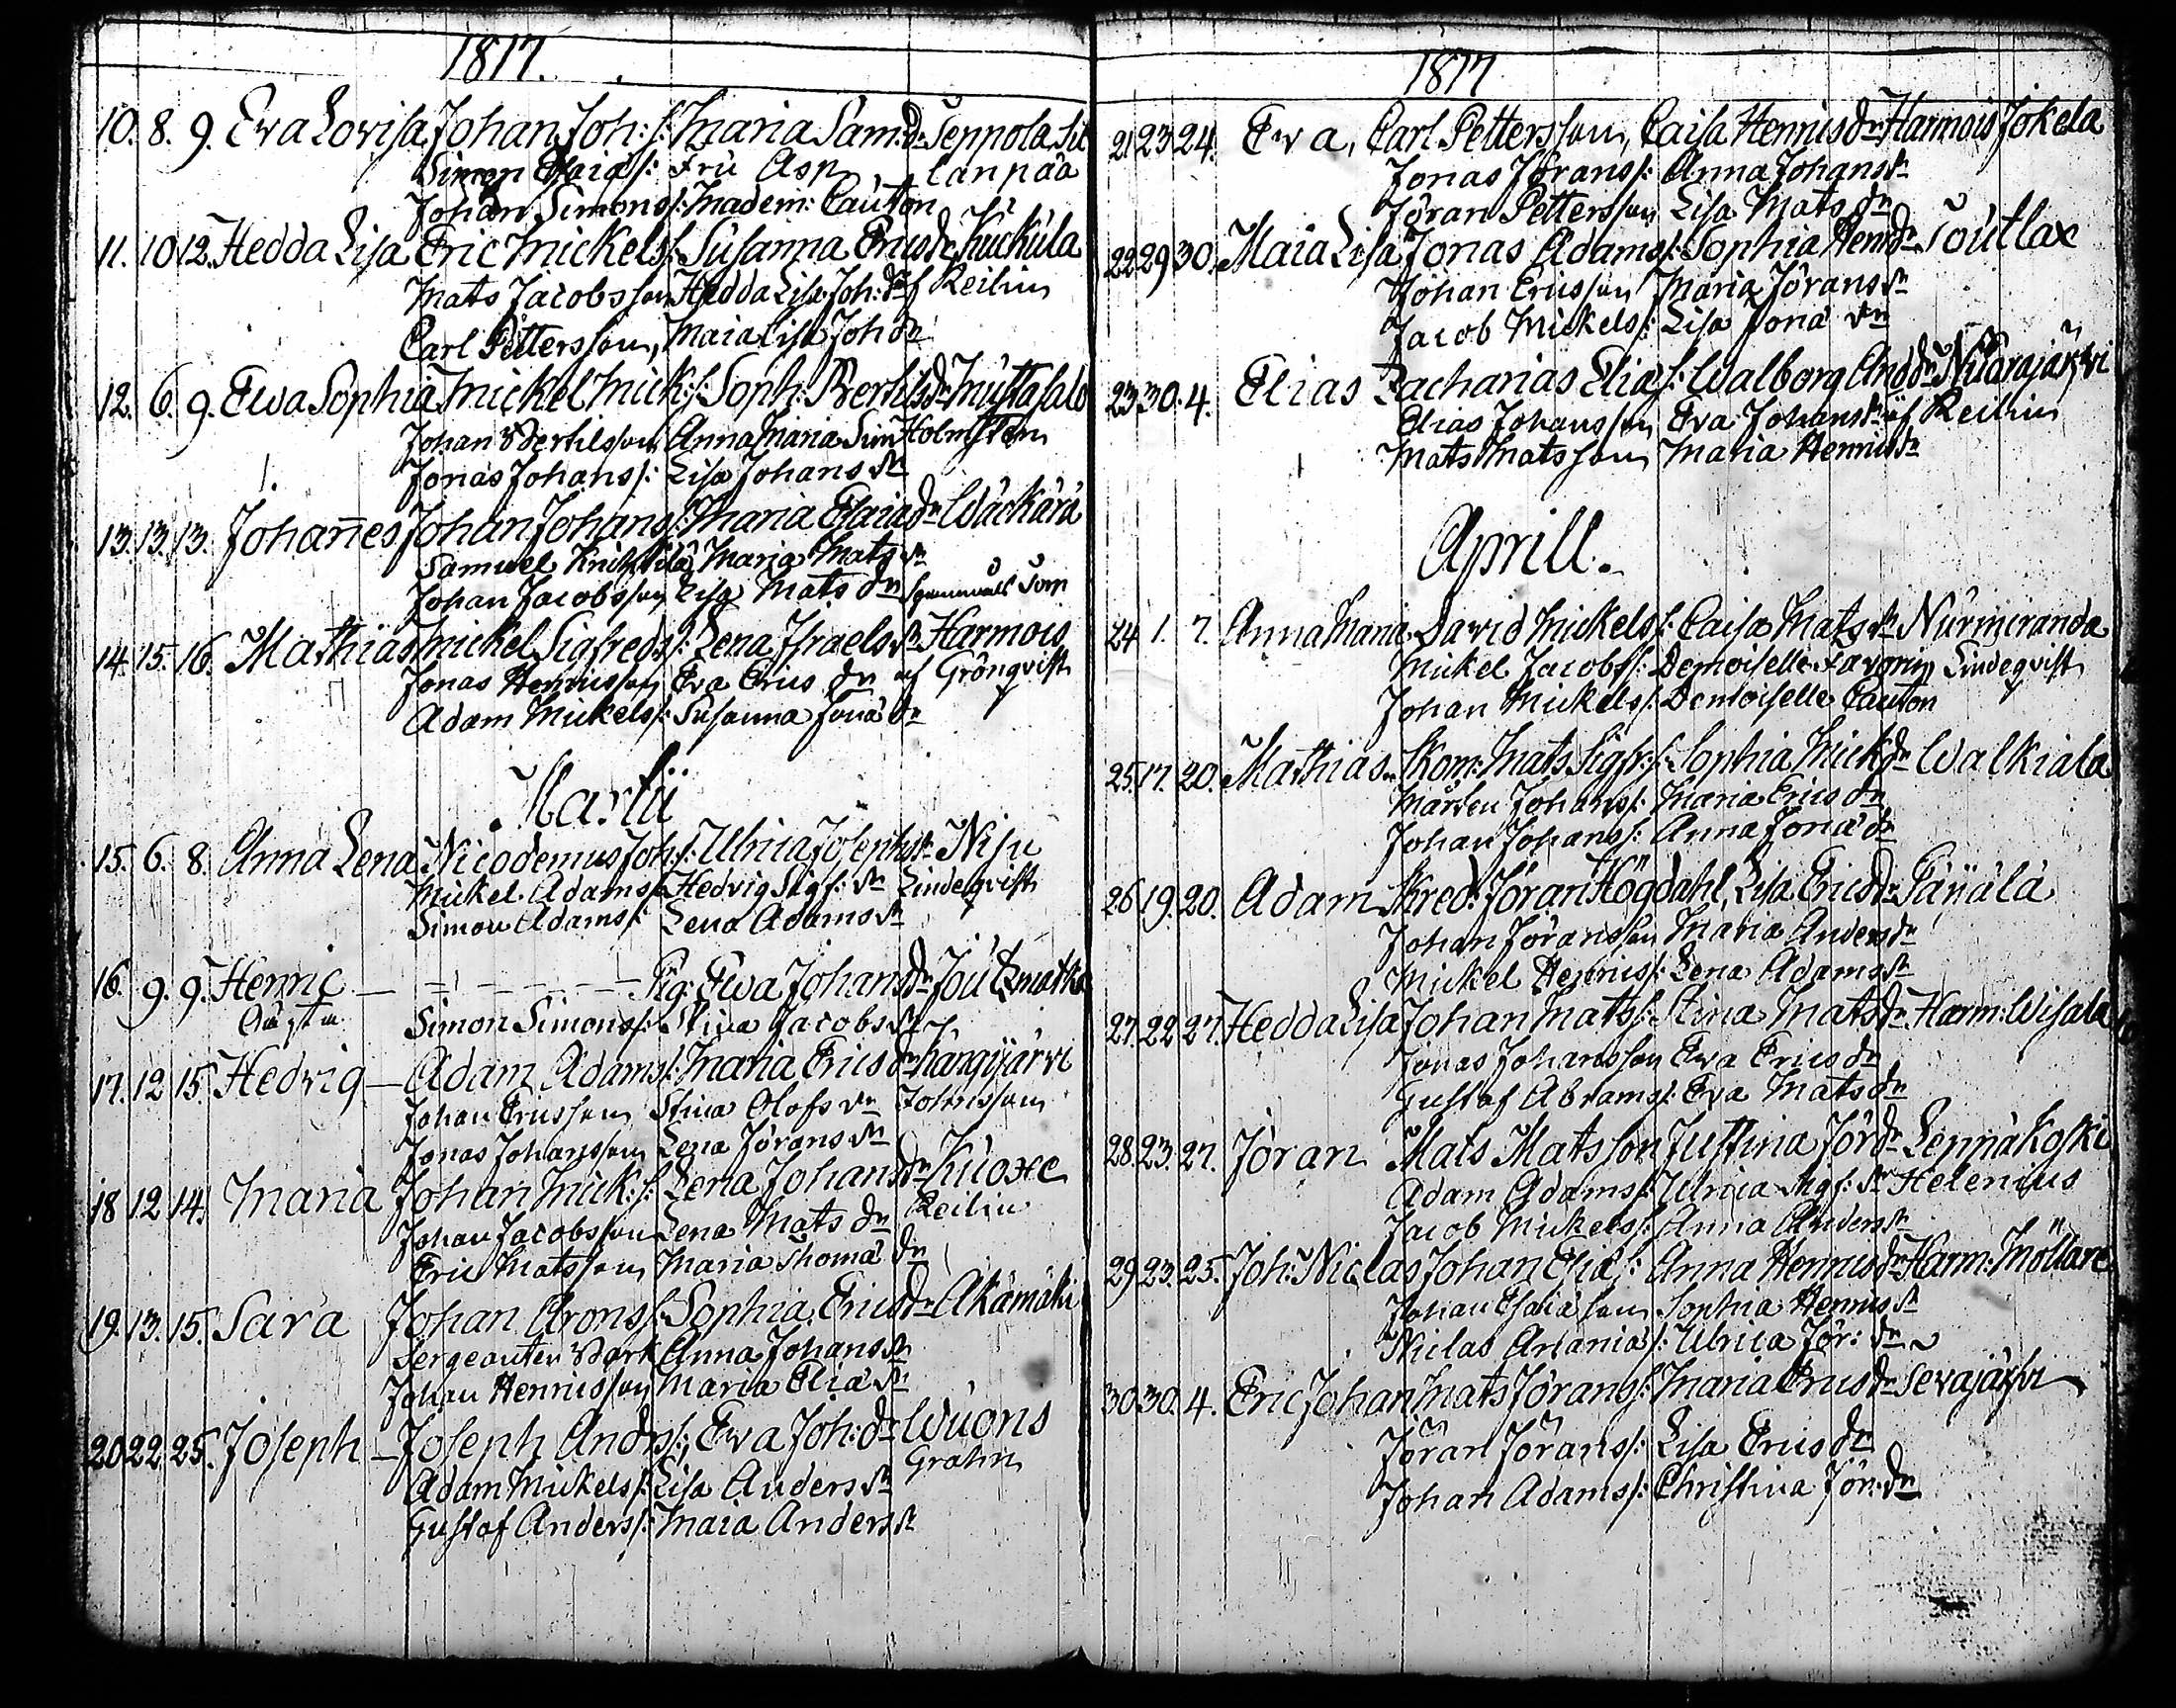 1817.
10. 8. 9. Eva Lovisa Johan Joh: s: Maria Sam: dr Seppola Sil
Simon Esaiæ s: Fru Asp lanpää
Johan Simons s: Madem: Cauton
11. 10 12. Hedda Lisa Eric Mickels s: Susanna Erics dr Kuckula
Mats Jacobsson Hedda Lisa Joh: dr af Keilin
Carl Pettersson, Maia Lisa Joh dr
12. 6. 9. Ewa Sophia Mickel Mick: s: Soph: Bertils dr Mustasalo
Johan Bertilsson Anna Maria Sim Holmsten
Jonas Johans s: Lisa Johans dr
13. 13. 13. Johannes Johan Johans s: Maria Esaiæ dr Wäckärä
Samuel Maria Mats dr
Johan Jacobsson Lisa Mats dr
14. 15. 16. Mathias Mickel Sigfreds s: Lena Israels dr Harmois
Jonas Henricsson Eva Erics dr af Grönqvist
Adam Mickels s: Susanna Jonæ dr
Martii
15. 6. 8. Anna Lena Nicodemus Joh s: Ulrica Josephs dr Nisu
Mickel Adams s: Hedvig Sigf: dr Lindeqvist
Simon Adams s: Lena Adams dr
16. 9. 9. Henric — — — — — Pig: Ewa Johans dr Joutzmatka
Simon Simons s: Stina Jacobs dr
17. 12 15. Hedvig — Adam Adams s: Maria Erics dr Kangijärvi
Johan Ericsson Stina Olofs dr Johnsson
Jonas Johansson Lena Jörans dr
18 12 14. Maria Johan Mick: s: Lena Johans dr Kuoxe
Johan Jacobsson Lena Mats dr Keilin
Eric Matsson Maria Thomæ dr
19. 13. 15. Sara Johan Arons s: Sophia Erics dr Akämäki
Sergeanten Bark Anna Johans dr
Johan Henricsson Maria Eliæ dr
20 22 25. Joseph — Joseph Anders s: Ewa Joh: dr Wuons
Adam Mickels s: Lisa Anders dr Grahn
Gustaf Anders s: Maia Anders dr
1817
21 23 24. Eva, Carl Pettersson, Caisa Henrics dr Harmois Jokela
Jonas Jörans s: Anna Johans dr
Jöran Pettersson Lisa Mats dr
22 29 30. Maia Lisa Jonas Adams s: Sophia Henr dr Toutlax
Johan Ericsson Maria Jörans dr
Jacob Mickels s: Lisa Jonæ dr
23 30. 4. Elias Zacharias Eliæ s: Walborg And dr
Elias Johansson Eva Johans dr af Keilin
Mats Matsson Maria Henrics dr
Aprill.
24 1. 7. Anna Maria David Mickels s: Caisa Mats dr Nurmiranda
Mickel Jacobs s: Demoiselle Favorin Lindeqvist
Johan Mickels s: Demoiselle Cauton
25. 17. 20. Mathias Skom: Mats Sigfr: s: Sophia Mick dr Walkiala
Mårten Johans s: Maria Erics dr
Johan Johans s: Anna Jonæ dr
26 19. 20. Adam Skred: Jöran Högdahl, Lisa Erics dr Päijälä
Johan Jöransson Maria Anders dr
Mickel Henrics s: Lena Adams dr
27. 22 27. Hedda Lisa Johan Mats s: Stina Mats dr Harm: Wisala
Jonas Johansson Eva Erics dr
Gustaf Abrams s: Eva Mats dr
28. 23. 27. Jöran Mats Matsson Justina Jör dr Leppäkoski
Adam Adams s: Ulrica Sigf: dr Helenius
Jacob Mickels s: Anna Anders dr
29. 23. 25. Joh: Niclas Johan Eliæ s: Anna Henrics dr Harm: Möllare
Johan Esaiæson Sophia Henrics dr
Niclas Ananiæ s: Ulrica Jör: dr
30. 30. 4. Eric Johan Mats Jörans s: Maria Erics dr Serajärfvi
Jöran Jörans s: Lisa Erics dr
Johan Adams s: Christina Jör: dr